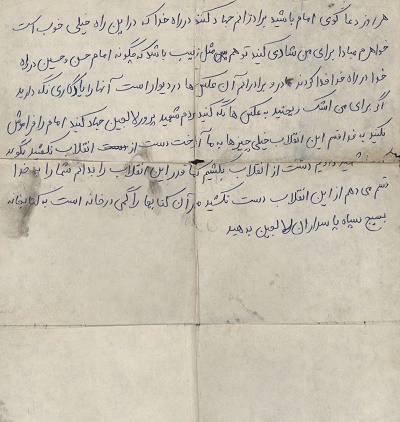 هر روز دعا گوی امام باشید برادرانم جهاد کنند در راه خدا که در این راه خیلی خوب است
خواهرم مبادا برای من شادی کند تو هم مثل زینب باش که چگونه امام حسن و حسین در راه
خدا در راه خدا فدا کردند و برادرانم آن عکس ها در دیوار است آنها را یادگاری نگه دارید
اگر برای من اشک ریختید به عکس ها نگاه کنید مردم شهید پرور لالجین جهاد کنند امام را فراموش
نکنید به خدا قسم این انقلاب خیلی چیزها به ما آموخت دست از انقلاب نکشید نگوید
شهید دادیم دست از انقلاب بکشیم قدر این انقلاب را بدانید شما را به خدا
قسم می دهم از این انقلاب دست نکشید مادر آن کتابها را که در خانه است به کتابخانه
بسیج سپاه پاسداران لالجین بدهید